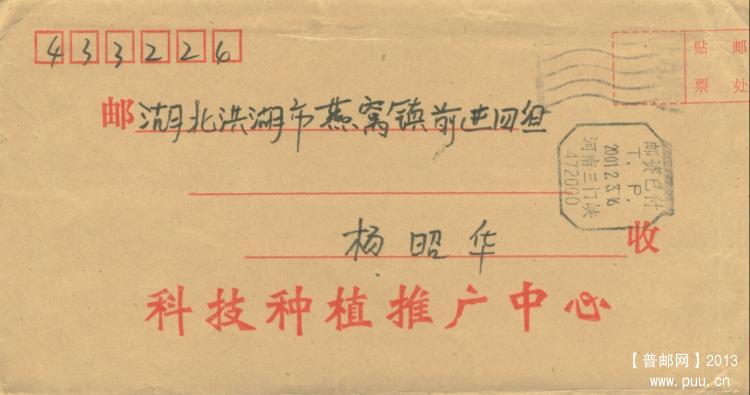 433226
贴邮
票处
邮 湖北洪湖市燕窝镇前进四组
邮资已付
T. P.
河南三门峡
472000
杨昭华 收
科技种植推广中心
【普邮网】2013
www.puu.cn